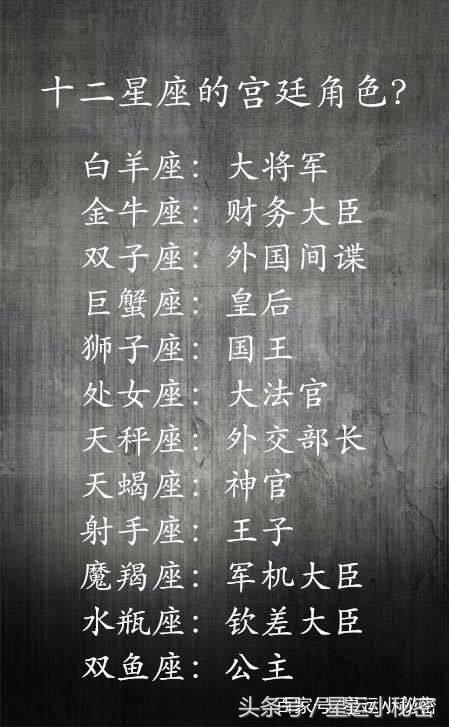 十二星座的宫廷角色?
白羊座：大将军
金牛座：财务大臣
双子座：外国间谍
巨蟹座：皇后
狮子座：国王
处女座：大法官
天秤座：外交部长
天蝎座：神官
射手座：王子
魔羯座：军机大臣
水瓶座：钦差大臣
双鱼座：公主
头条号/星运小秘密